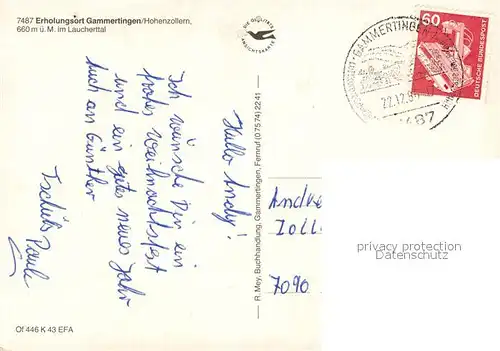 7487 Erholungsort Gammertingen/Hohenzollern,
660 m ü. M. im Laucherttal
DIE QUALITÄTS
ANSICHTSKARTE
GAMMERTINGEN
22.12.8
487
60
DEUTSCHE BUNDESPOST
Hallo Andy!
Ich wünsche Dir ein
frohes Weihnachtsfest
und ein gutes neues Jahr
auch an Günther
Tschüß Pauli
R. Mey, Buchhandlung, Gammertingen, Fernruf (07574) 2241
Andre
Zoll
7090
privacy protection
Datenschutz
Of 446 K 43 EFA